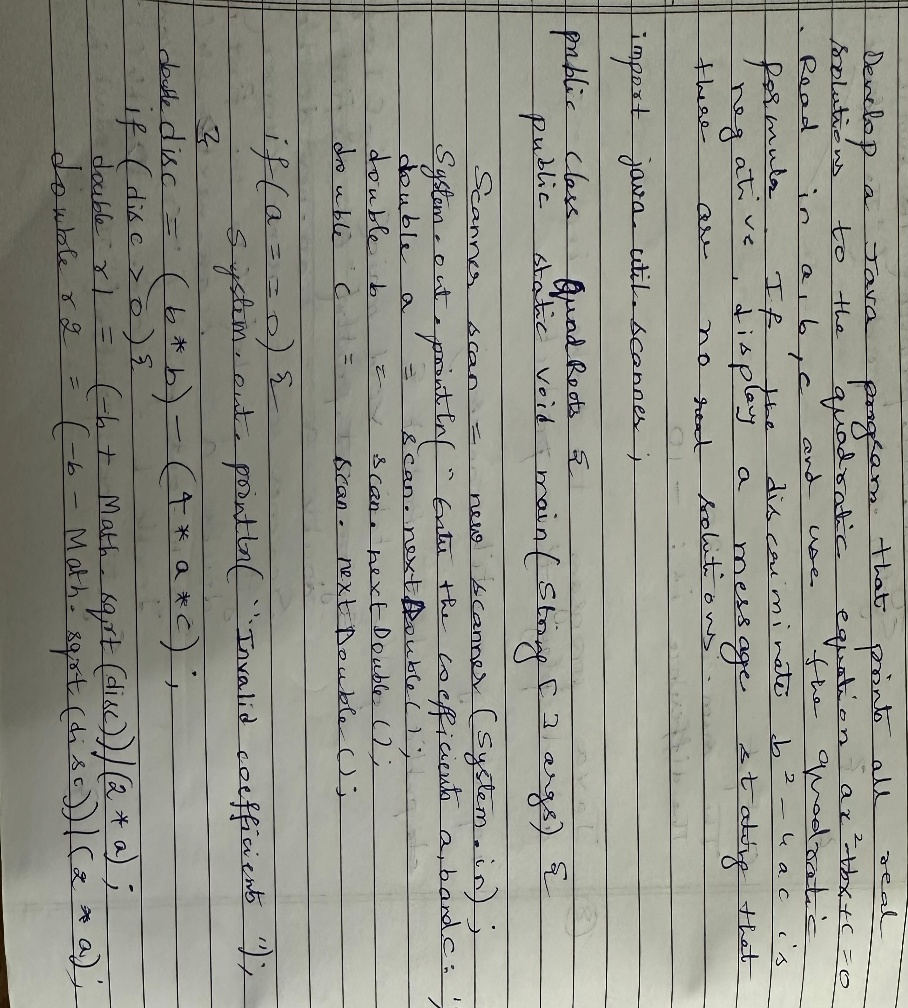 Develop a Java program that prints all real
solutions to the quadratic equation ax²+bx+c=0
. Read in a, b, c and use the quadratic
formula. If the discriminate b² - 4ac is
negative, display a message stating that
there are no real solutions.
import java.util.scanner;
public class QuadRoots {
public static void main(String [] args) {
Scanner scan = new scanner(System.in);
System.out.println("Enter the coefficients a, b and c:
double a = scan.nextDouble();
double b = scan.nextDouble();
double c = scan.nextDouble();
if(a==0) {
System.out.println("Invalid coefficients");
}
double disc = (b*b) - (4*a*c);
if(disc>0) {
double r1 = (-b + Math.sqrt(disc))/(2*a);
double r2 = (-b - Math.sqrt(disc))/(2*a);